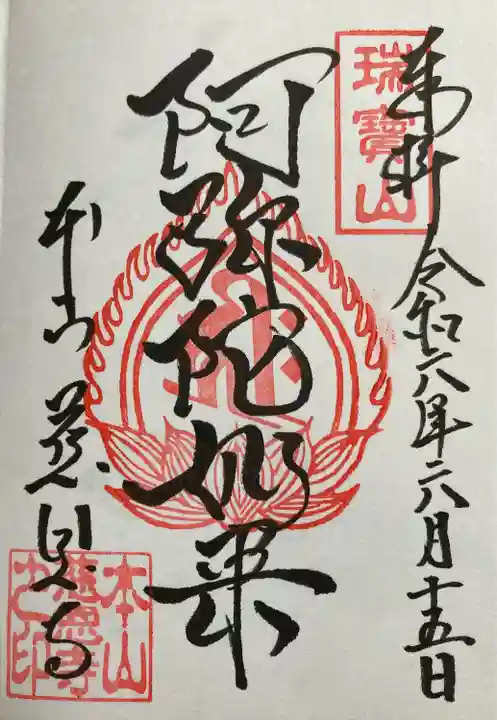 奉拝 令和六年六月十五日
瑞寶山
阿弥陀如来
本山 慈恩寺
本山
慈恩寺
之印